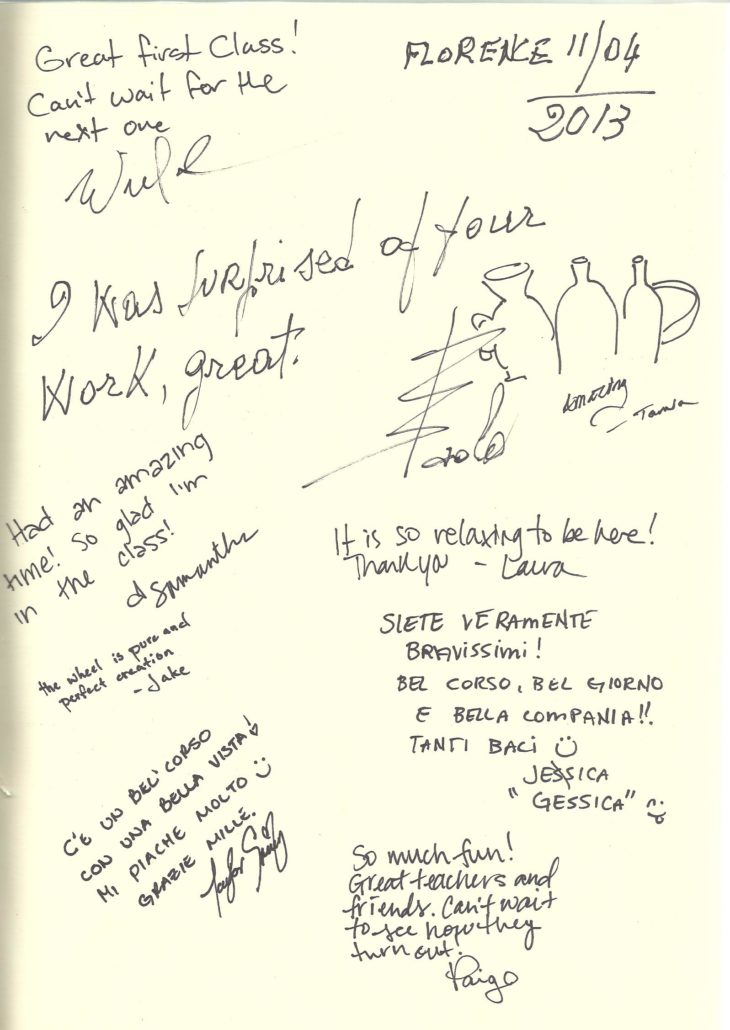 Great first Class!
Can't wait for the
next one
FLORENCE 11/04
2013
I was surprised of your
work, great.
amazing
Had an amazing
time! So glad I'm
in the class!
Samantha
It is so relaxing to be here!
Thank you - Laura
the wheel is pure and
perfect creation
- Jake
SIETE VERAMENTE
BRAVISSIMI!
BEL CORSO, BEL GIORNO
E BELLA COMPANIA!!.
TANTI BACI
JESSICA
"GESSICA"
C'E UN BEL' CORSO
CON UNA BELLA VISTA!
MI PIACHE MOLTO
GRAZIE MILLE.
Taylor
So much fun!
Great teachers and
friends. Can't wait
to see how they
turn out.
Paige